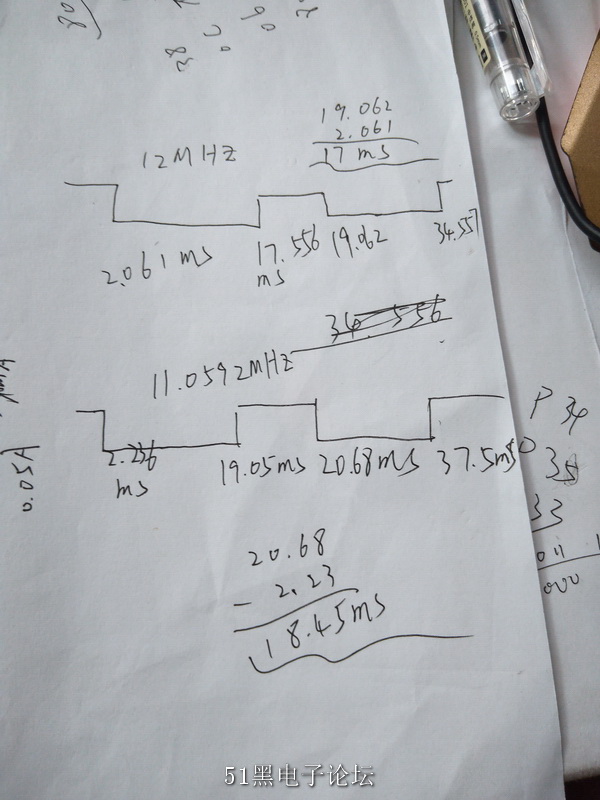 19.062
2.061
17 ms
12MHZ
2.061 ms
17.556
ms
19.062
34.557
34.556
11.0592MHZ
2.236
ms
19.05ms
20.68ms
37.5ms
20.68
- 2.23
18.45ms
P 34
35
33
011 1
000
0.05A
51黑电子论坛